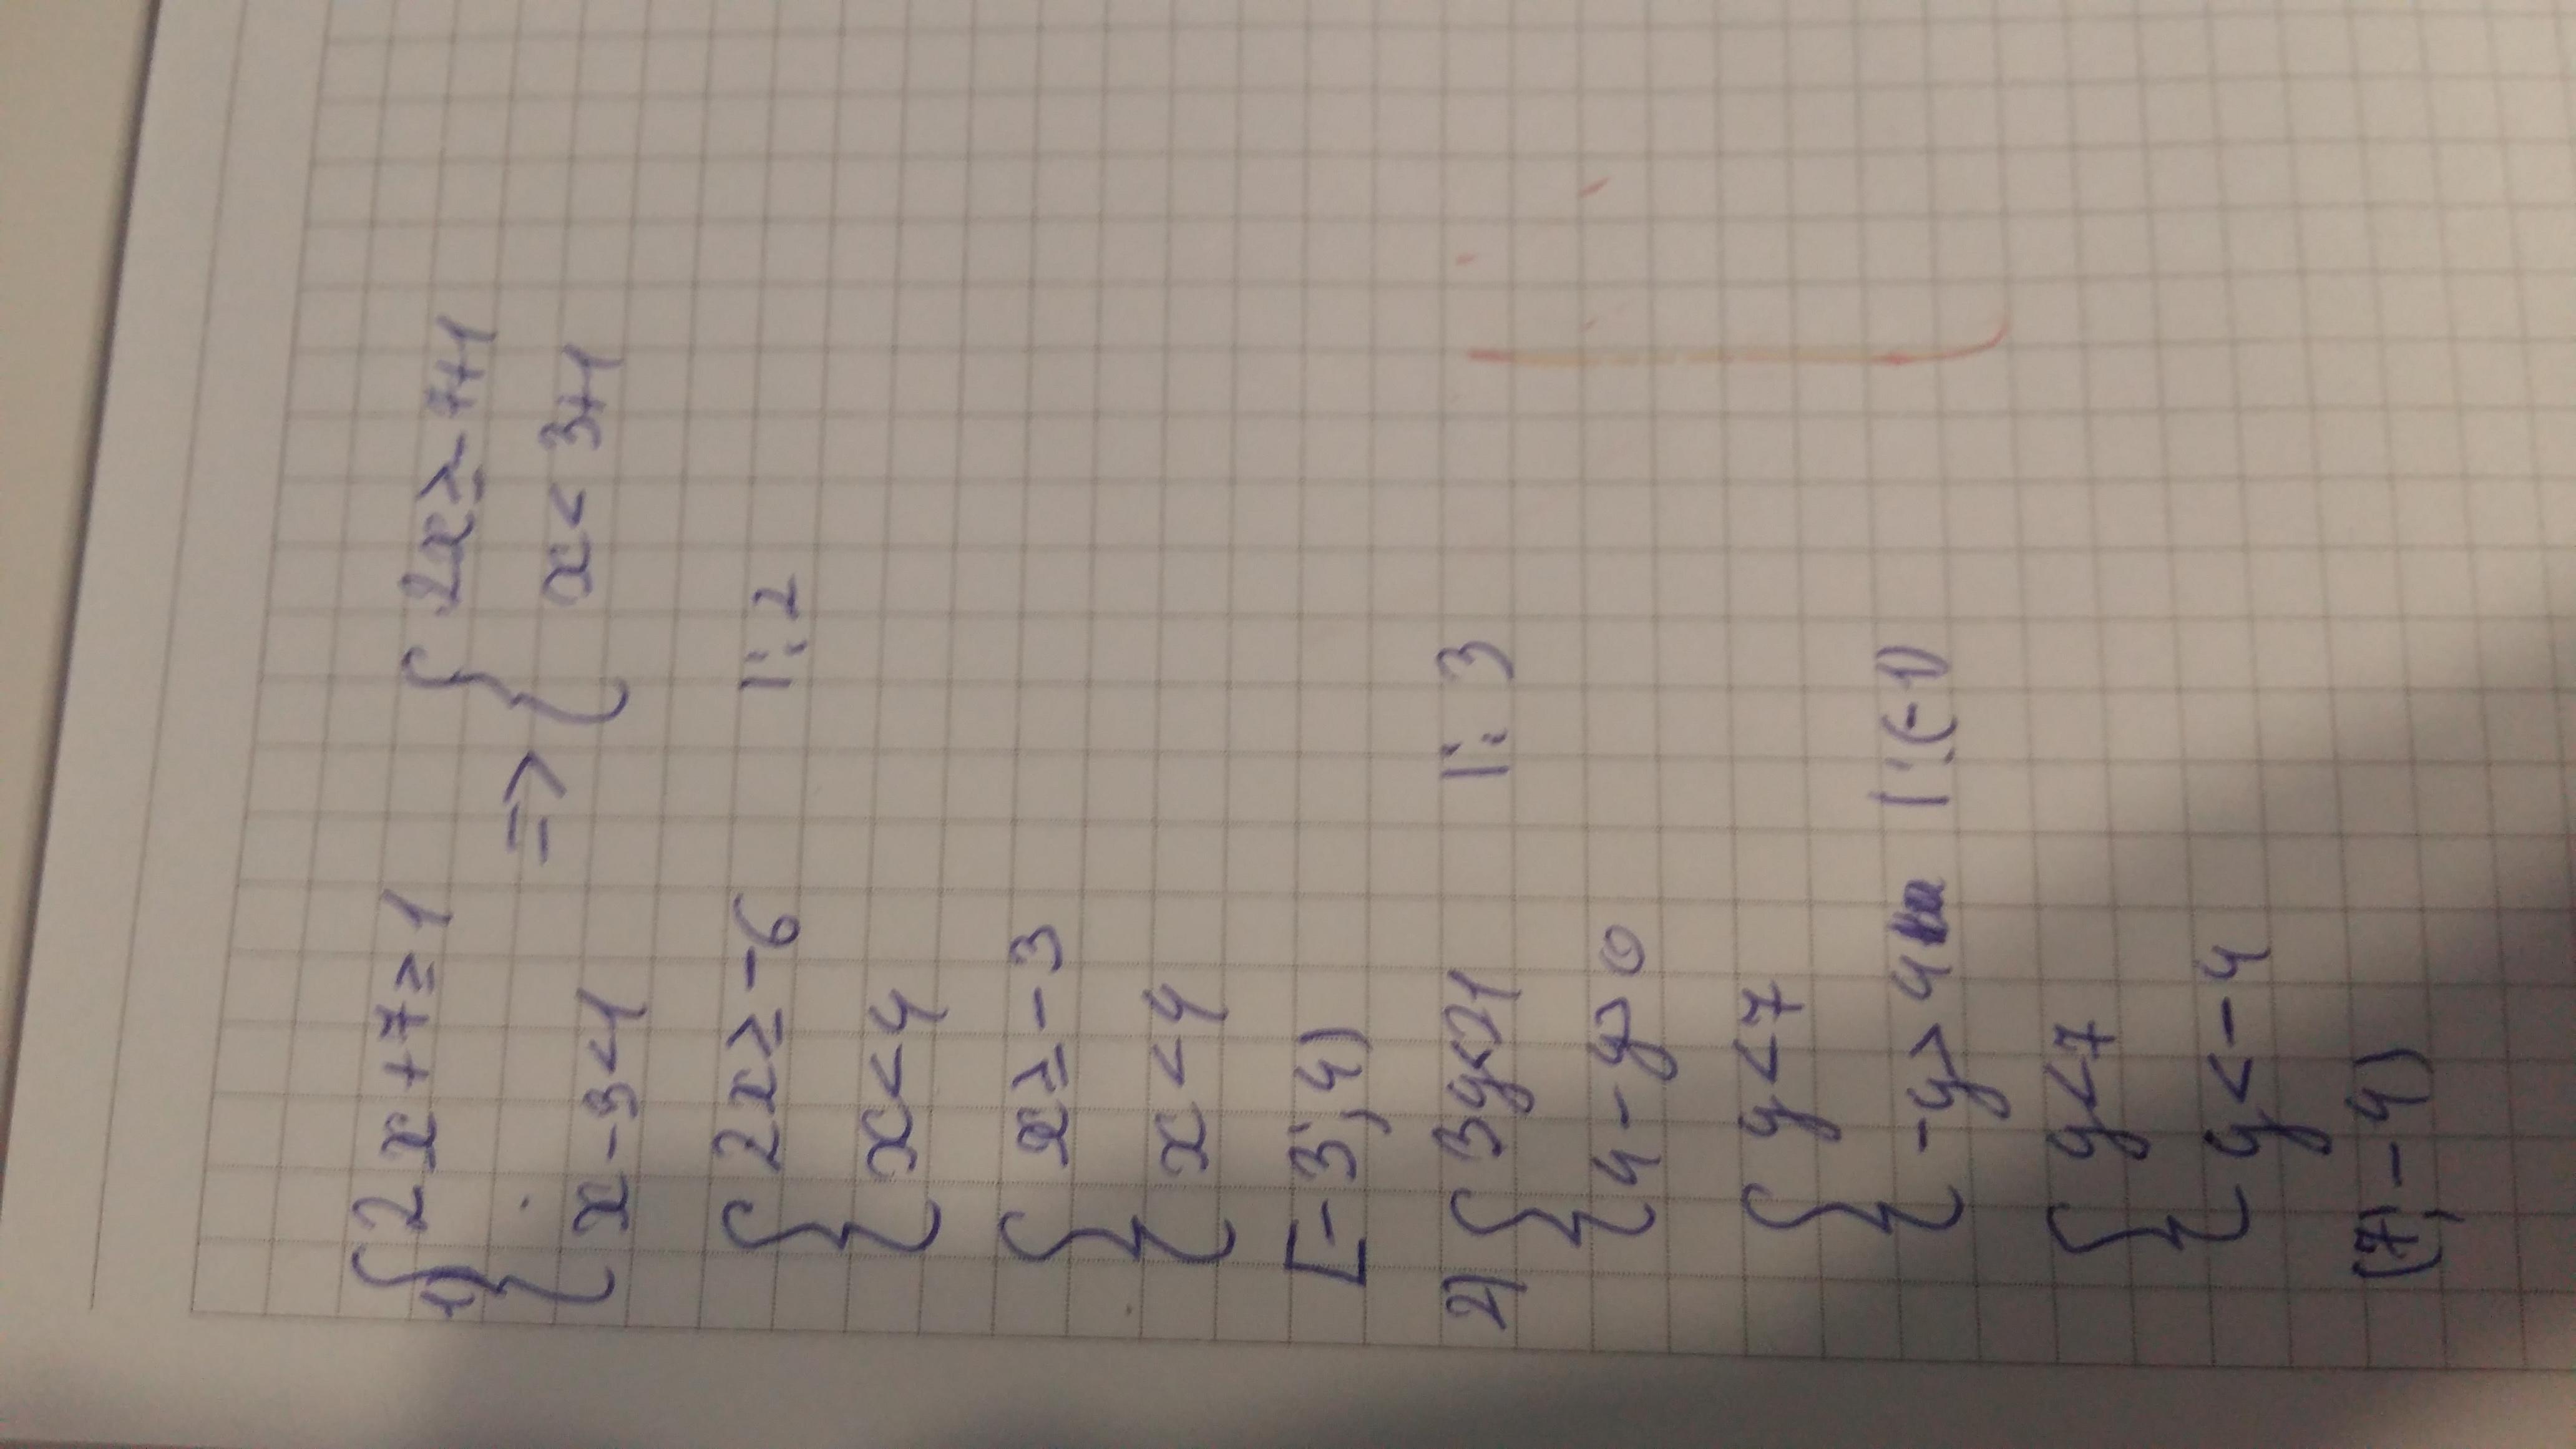 1) { 2x+7≥1 => { 2x≥-7+1
x-3<1 x<3+1
{ 2x≥-6 |:2
x<4
{ x≥-3
x<4
[-3;4)
2) { 3y<21 |:3
4-y>0
{ y<7
-y>4 |:(-1)
{ y<7
y<-4
(7;-4)